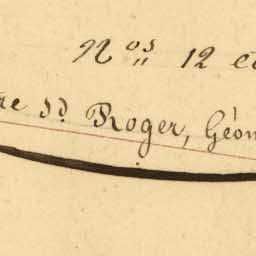 Nos 12 e
re Sd. Roger, Géom